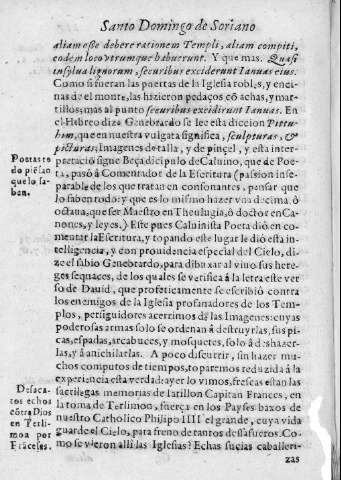 Santo Domingo de Soriano
aliam esse debere rationem Templi, aliam compiti,
eodem loco vtrumque habuerunt. Y que mas. Quasi
in sylua lignorum, securibus exciderunt Ianuas eius.
Como si fueran las puertas de la Iglesia robles, y encinas
nas de el monte, las hizieron pedaços cõ achas, y martillos;
tillos; mas al punto securibus exciderunt Ianuas. En
el Hebreo dize Genebrardo se lee esta diccion Pittuhim,
him, que en nuestra vulgata significa, sculpturas, &
picturas, Imagenes de talla, y de pinçel, y esta interpretació
pretació sigue Beça dicipulo de Caluino, que de Poeta,
Poetasto
do piẽsan
que lo saben.
ben.
ta, pasó à Comentador de la Escritura (passion inseparable
parable de los que tratan en consonantes, pensar que
lo saben todo: y que es lo mismo hazer vna decima, ò
octaua, que ser Maestro en Theulugia, ò doctor en Canones,
nones, y leyes.) Este pues Caluinista Poeta dió en comentar
mentar la Escritura, y topando este lugar le dió esta inteligencia,
teligencia, y con prouidencia especial del Cielo, dize
ze el sabio Genebrardo, para dibuxar al viuo sus hereges
ges sequaces, de los quales se verifica à la letra este verso
so de Dauid, que profeticamente se escribió contra
los enemigos de la Iglesia profanadores de los Templos,
plos, perseguidores acerrimos de las Imagenes: cuyas
poderosas armas solo se ordenan à destruyrlas, sus picas,
cas, espadas, arcabuces, y mosquetes, solo à deshazerlas,
las, y à anichilarlas. A poco discurrir, sin hazer muchos
chos computos de tiempos, toparemos reduzida à la
experiencia esta verdad: ayer lo vimos, frescas estan las
Desacatos
tos echos
cõtra Dios
en Terlimoa
moa por
Frãceses.
sacrilegas memorias de Iatillon Capitan Frances, en
la toma de Terlimon, fuerça en los Payses baxos de
nuestro Catholico Philipo IIII el grande, cuya vida
guarde el Cielo, para freno de tantos desafueros. Como
mo se vieron alli las Iglesias? Echas sucias caballeri-
zas